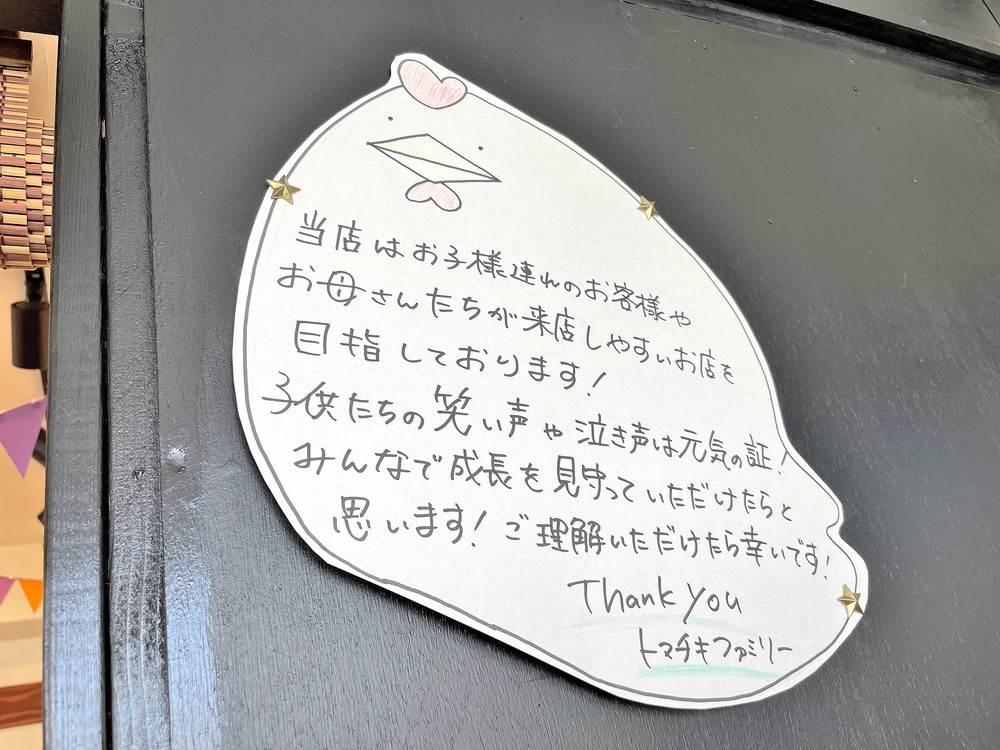 当店はお子様連れのお客様や
お母さんたちが来店しやすいお店を
目指しております!
子供たちの笑い声や泣き声は元気の証!
みんなで成長を見守っていただけたらと
思います!ご理解いただけたら幸いです!
Thank you
トマチキファミリー